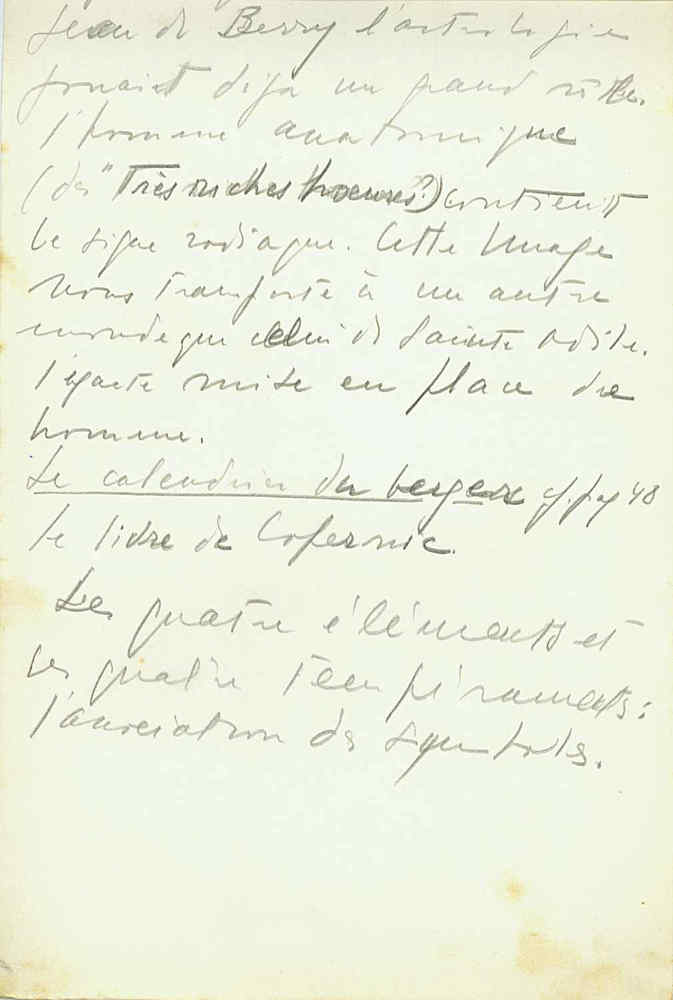 Jean de Berry l'astrologie
jouait déjà un grand rôle.
l'homme anatomique
(des "Très riches heures?) contient
le signe zodiaque. Cette Image
nous transporte à un autre
monde que celui de Sainte Odile.
l'exacte mise en place de
homme.
Le calendrier des bergers cf. pag 48
le livre de Copernic.
Les quatre éléments et
les quatre tempéraments:
l'association des symboles.